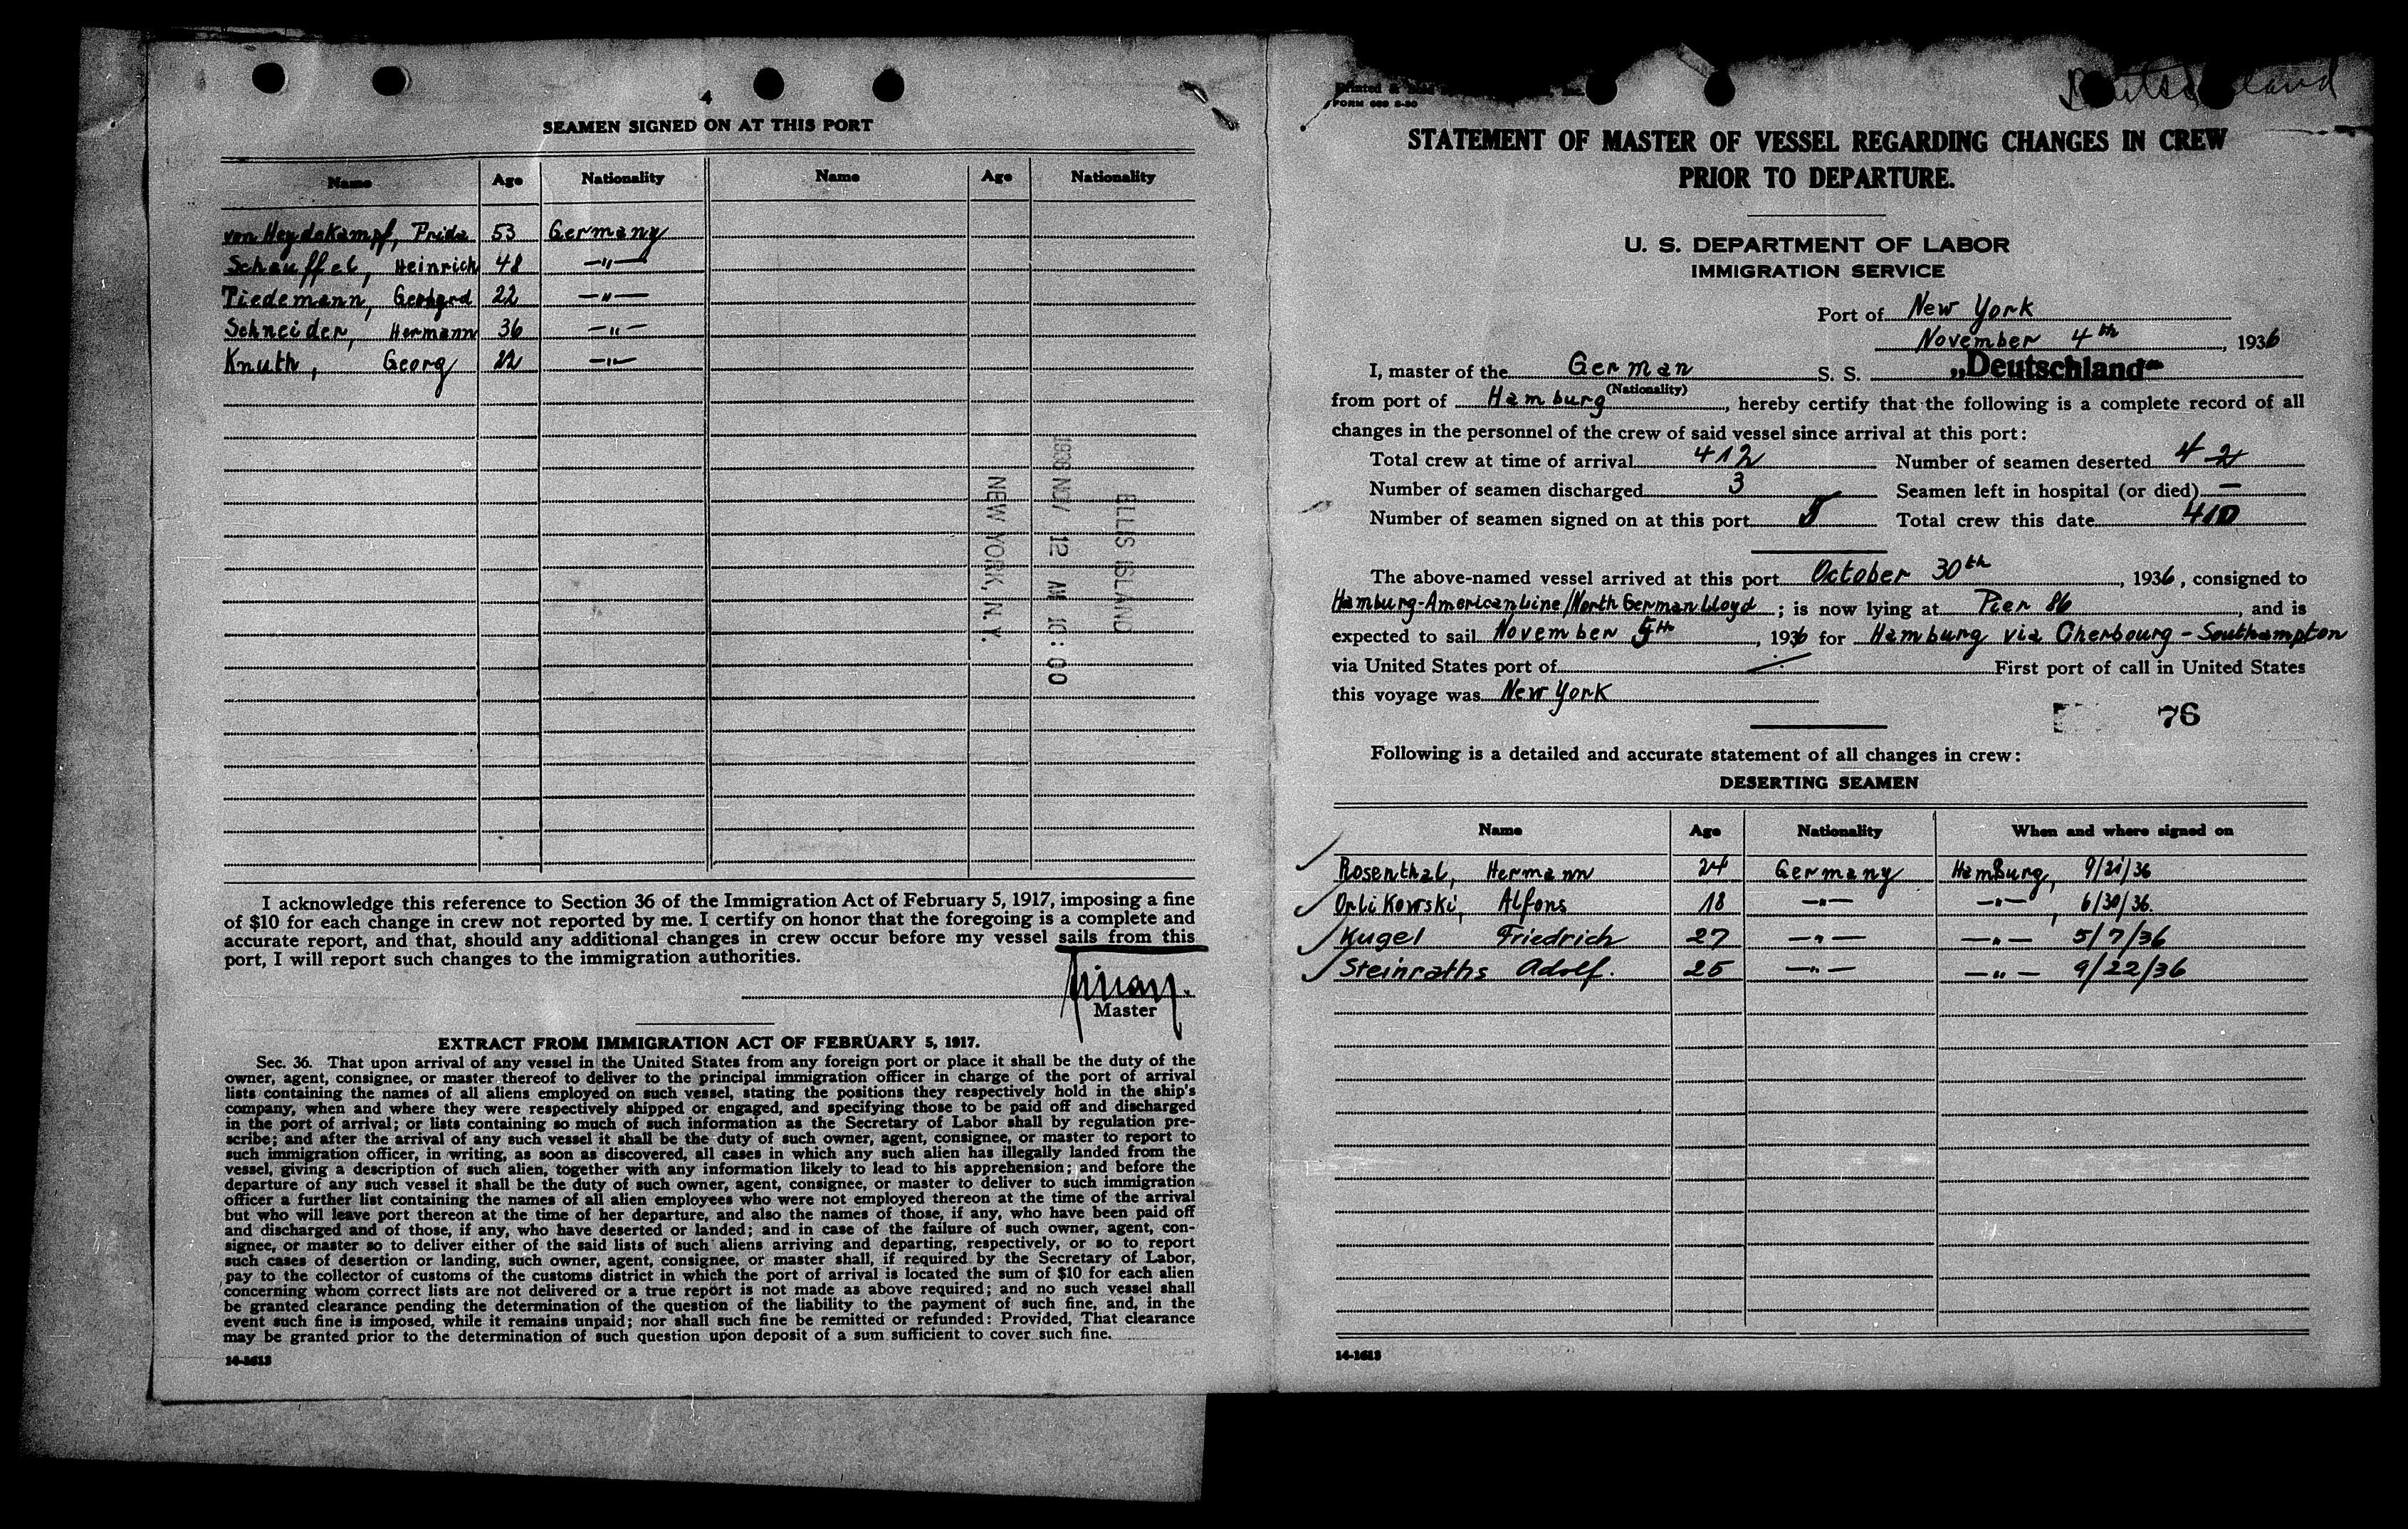 4
SEAMEN SIGNED ON AT THIS PORT
Name Age Nationality Name Age Nationality
von Heydekampf, Frida 53 Germany
Schauffel, Heinrich 48 —"—
Tiedemann, 22 —"—
Schneider, Hermann 36 —"—
Knuth, Georg 22 —"—
ELLIS ISLAND
1936 NOV 12 AM 10:00
NEW YORK, N.Y.
I acknowledge this reference to Section 36 of the Immigration Act of February 5, 1917, imposing a fine
of $10 for each change in crew not reported by me. I certify on honor that the foregoing is a complete and
accurate report, and that, should any additional changes in crew occur before my vessel sails from this
port, I will report such changes to the immigration authorities.
Master
EXTRACT FROM IMMIGRATION ACT OF FEBRUARY 5, 1917.
Sec. 36. That upon arrival of any vessel in the United States from any foreign port or place it shall be the duty of the
owner, agent, consignee, or master thereof to deliver to the principal immigration officer in charge of the port of arrival
lists containing the names of all aliens employed on such vessel, stating the positions they respectively hold in the ship's
company, when and where they were respectively shipped or engaged, and specifying those to be paid off and discharged
in the port of arrival; or lists containing so much of such information as the Secretary of Labor shall by regulation pre-
scribe; and after the arrival of any such vessel it shall be the duty of such owner, agent, consignee, or master to report to
such immigration officer, in writing, as soon as discovered, all cases in which any such alien has illegally landed from the
vessel, giving a description of such alien, together with any information likely to lead to his apprehension; and before the
departure of any such vessel it shall be the duty of such owner, agent, consignee, or master to deliver to such immigration
officer a further list containing the names of all alien employees who were not employed thereon at the time of the arrival
but who will leave port thereon at the time of her departure, and also the names of those, if any, who have been paid off
and discharged and of those, if any, who have deserted or landed; and in case of the failure of such owner, agent, con-
signee, or master so to deliver either of the said lists of such aliens arriving and departing, respectively, or so to report
such cases of desertion or landing, such owner, agent, consignee, or master shall, if required by the Secretary of Labor,
pay to the collector of customs of the customs district in which the port of arrival is located the sum of $10 for each alien
concerning whom correct lists are not delivered or a true report is not made as above required; and no such vessel shall
be granted clearance pending the determination of the question of the liability to the payment of such fine, and, in the
event such fine is imposed, while it remains unpaid; nor shall such fine be remitted or refunded: Provided, That clearance
may be granted prior to the determination of such question upon deposit of a sum sufficient to cover such fine.
14-1613
Printed &
Deutschland
STATEMENT OF MASTER OF VESSEL REGARDING CHANGES IN CREW
PRIOR TO DEPARTURE.
U. S. DEPARTMENT OF LABOR
IMMIGRATION SERVICE
Port of New York
November 4th, 1936
I, master of the German S. S. „Deutschland"
(Nationality)
from port of Hamburg, hereby certify that the following is a complete record of all
changes in the personnel of the crew of said vessel since arrival at this port:
Total crew at time of arrival 412 Number of seamen deserted 4 2
Number of seamen discharged 3 Seamen left in hospital (or died) —
Number of seamen signed on at this port 5 Total crew this date 410
The above-named vessel arrived at this port October 30th, 1936, consigned to
Hamburg-American Line/North German Lloyd; is now lying at Pier 86, and is
expected to sail November 5th, 1936 for Hamburg via Cherbourg - Southampton
via United States port of First port of call in United States
this voyage was New York
76
Following is a detailed and accurate statement of all changes in crew:
DESERTING SEAMEN
Name Age Nationality When and where signed on
Rosenthal, Hermann 24 Germany Hamburg, 9/21/36
Orlikowski, Alfons 18 —"— —"—, 6/30/36.
Kugel Friedrich 27 —"— —"— 5/7/36
Steinraths Adolf. 25 —"— —"— 9/22/36
14-1613